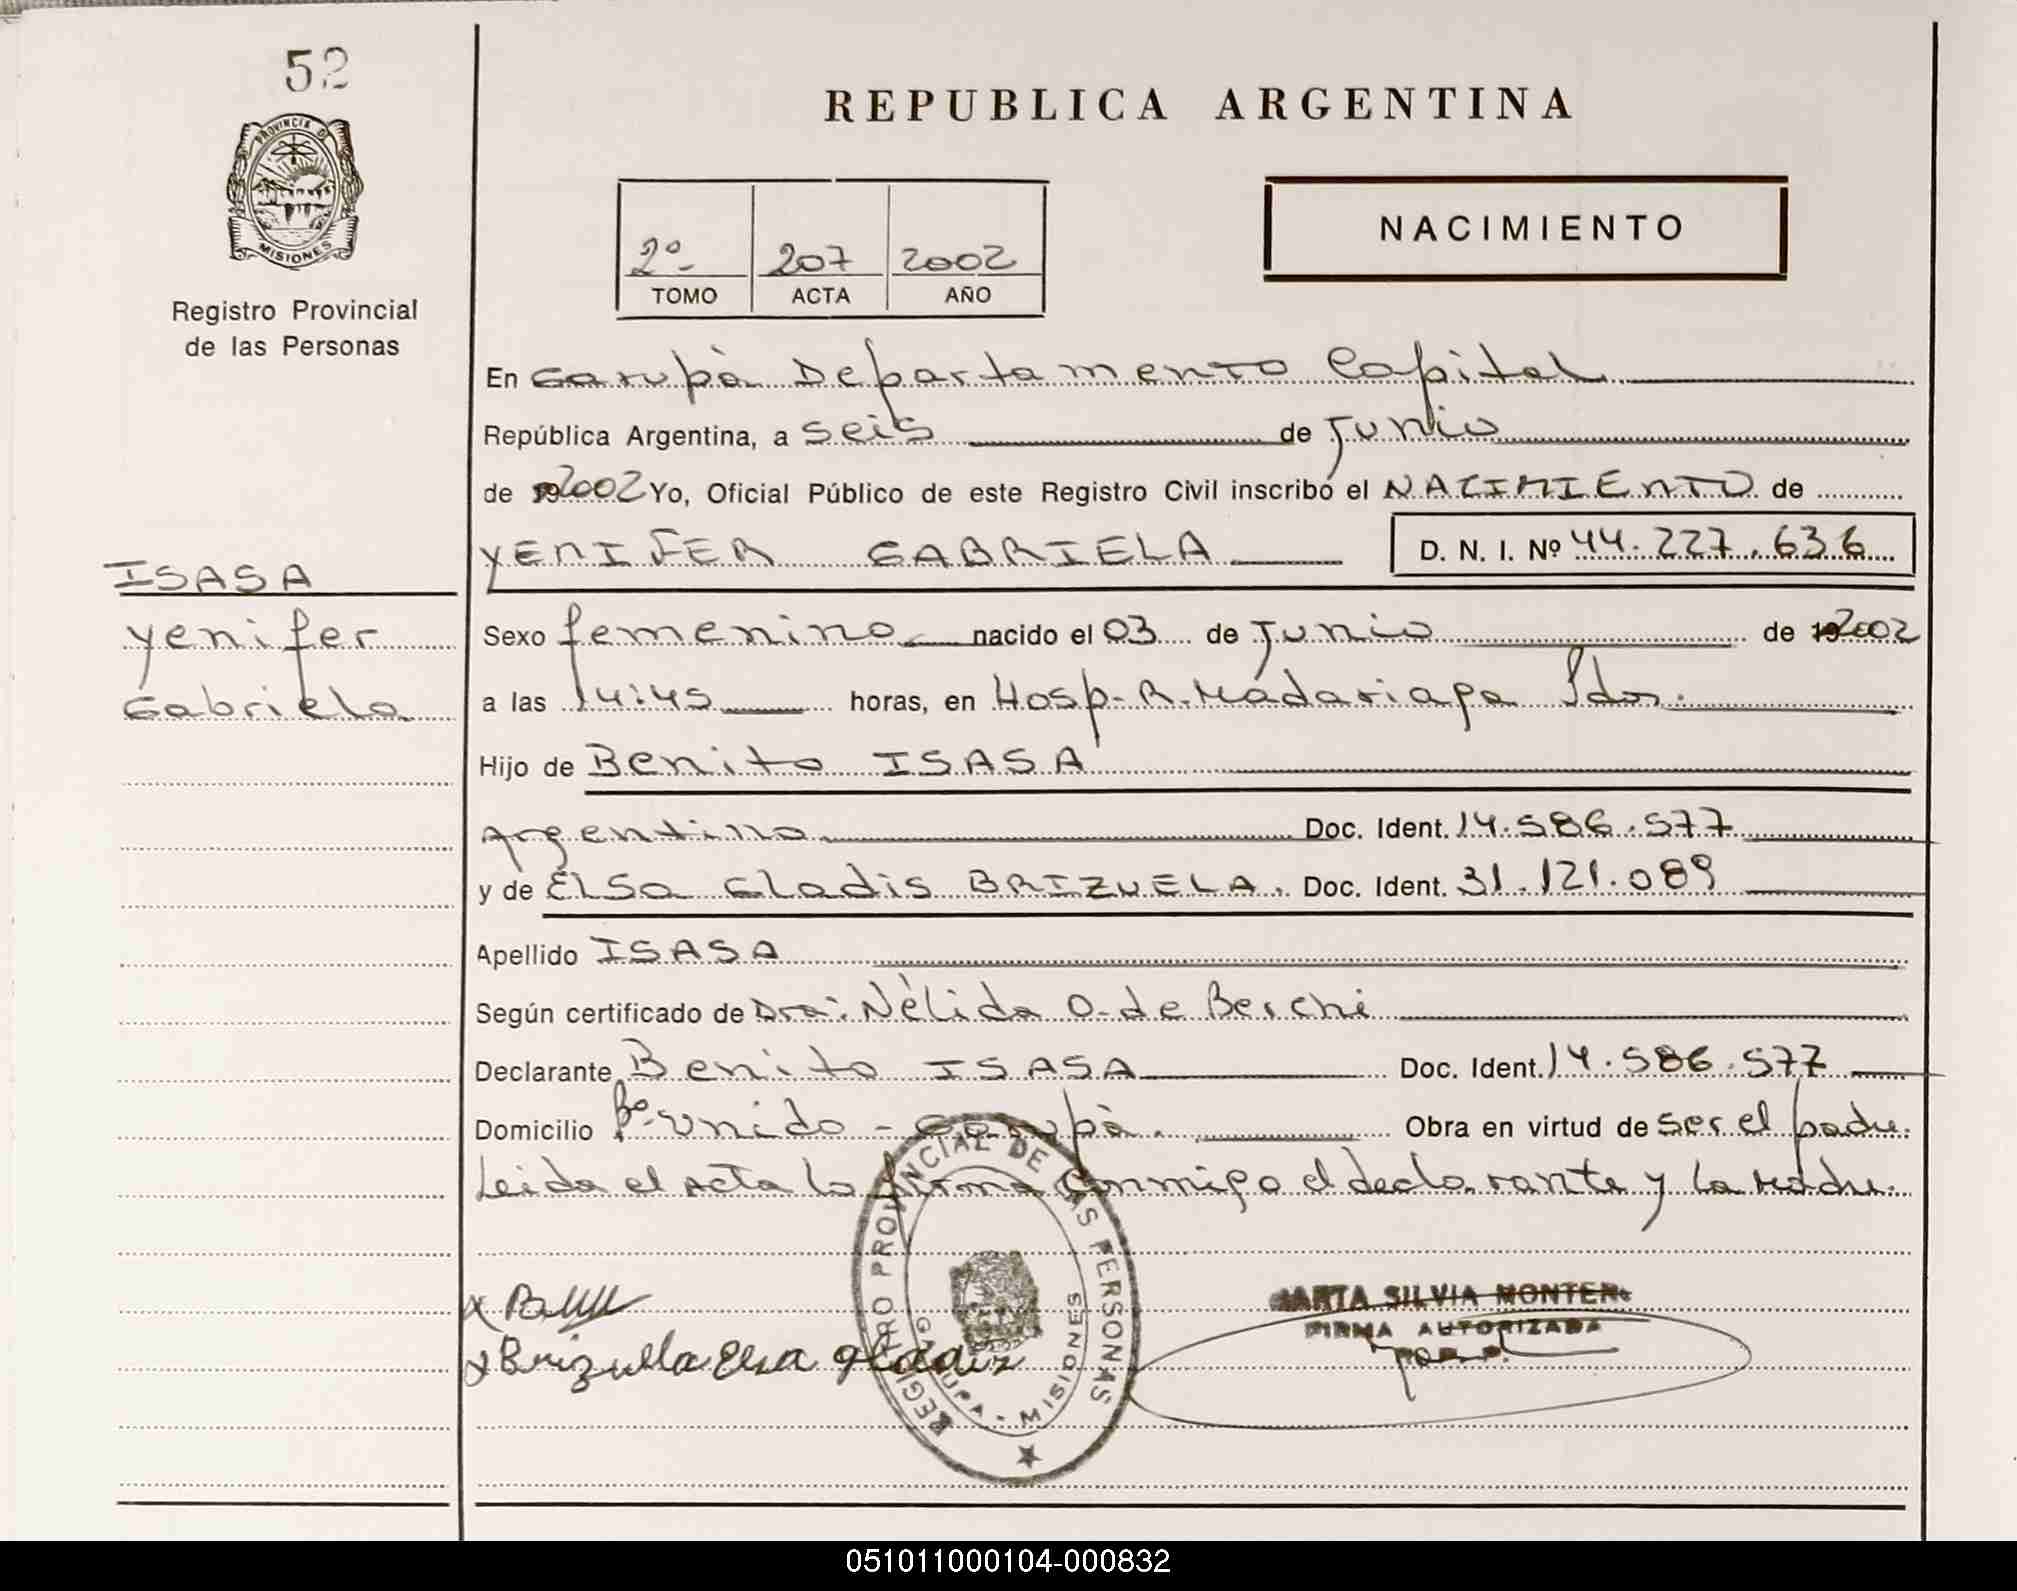 52
REPUBLICA ARGENTINA
PROVINCIA DE
MISIONES
Registro Provincial
de las Personas
2º 207 2002
TOMO ACTA AÑO
NACIMIENTO
En Garupà Departamento Capital
República Argentina, a seis de Junio
de 2002 Yo, Oficial Público de este Registro Civil inscribo el NACIMIENTO de
YENIFER GABRIELA D. N. I. Nº 44.227.636
ISASA
Yenifer
Gabriela
Sexo femenino nacido el 03 de Junio de 2002
a las 14:45 horas, en Hosp. R. Madariaga Pdas.
Hijo de Benito ISASA
Argentino Doc. Ident. 14.586.577
y de Elsa Gladis BRIZUELA. Doc. Ident. 31.121.089
Apellido ISASA
Según certificado de Dra: Nèlida O. de Berchi
Declarante Benito ISASA Doc. Ident. 14.586.577
Domicilio Bº Unido - Garupà. Obra en virtud de ser el padre.
Leida el Acta la firma conmigo el declarante y la Madre.
REGISTRO PROVINCIAL DE LAS PERSONAS
GARUPA - MISIONES
x
x Brizuela Elsa Gladis
MARTA SILVIA MONTERO
FIRMA AUTORIZADA
051011000104-000832